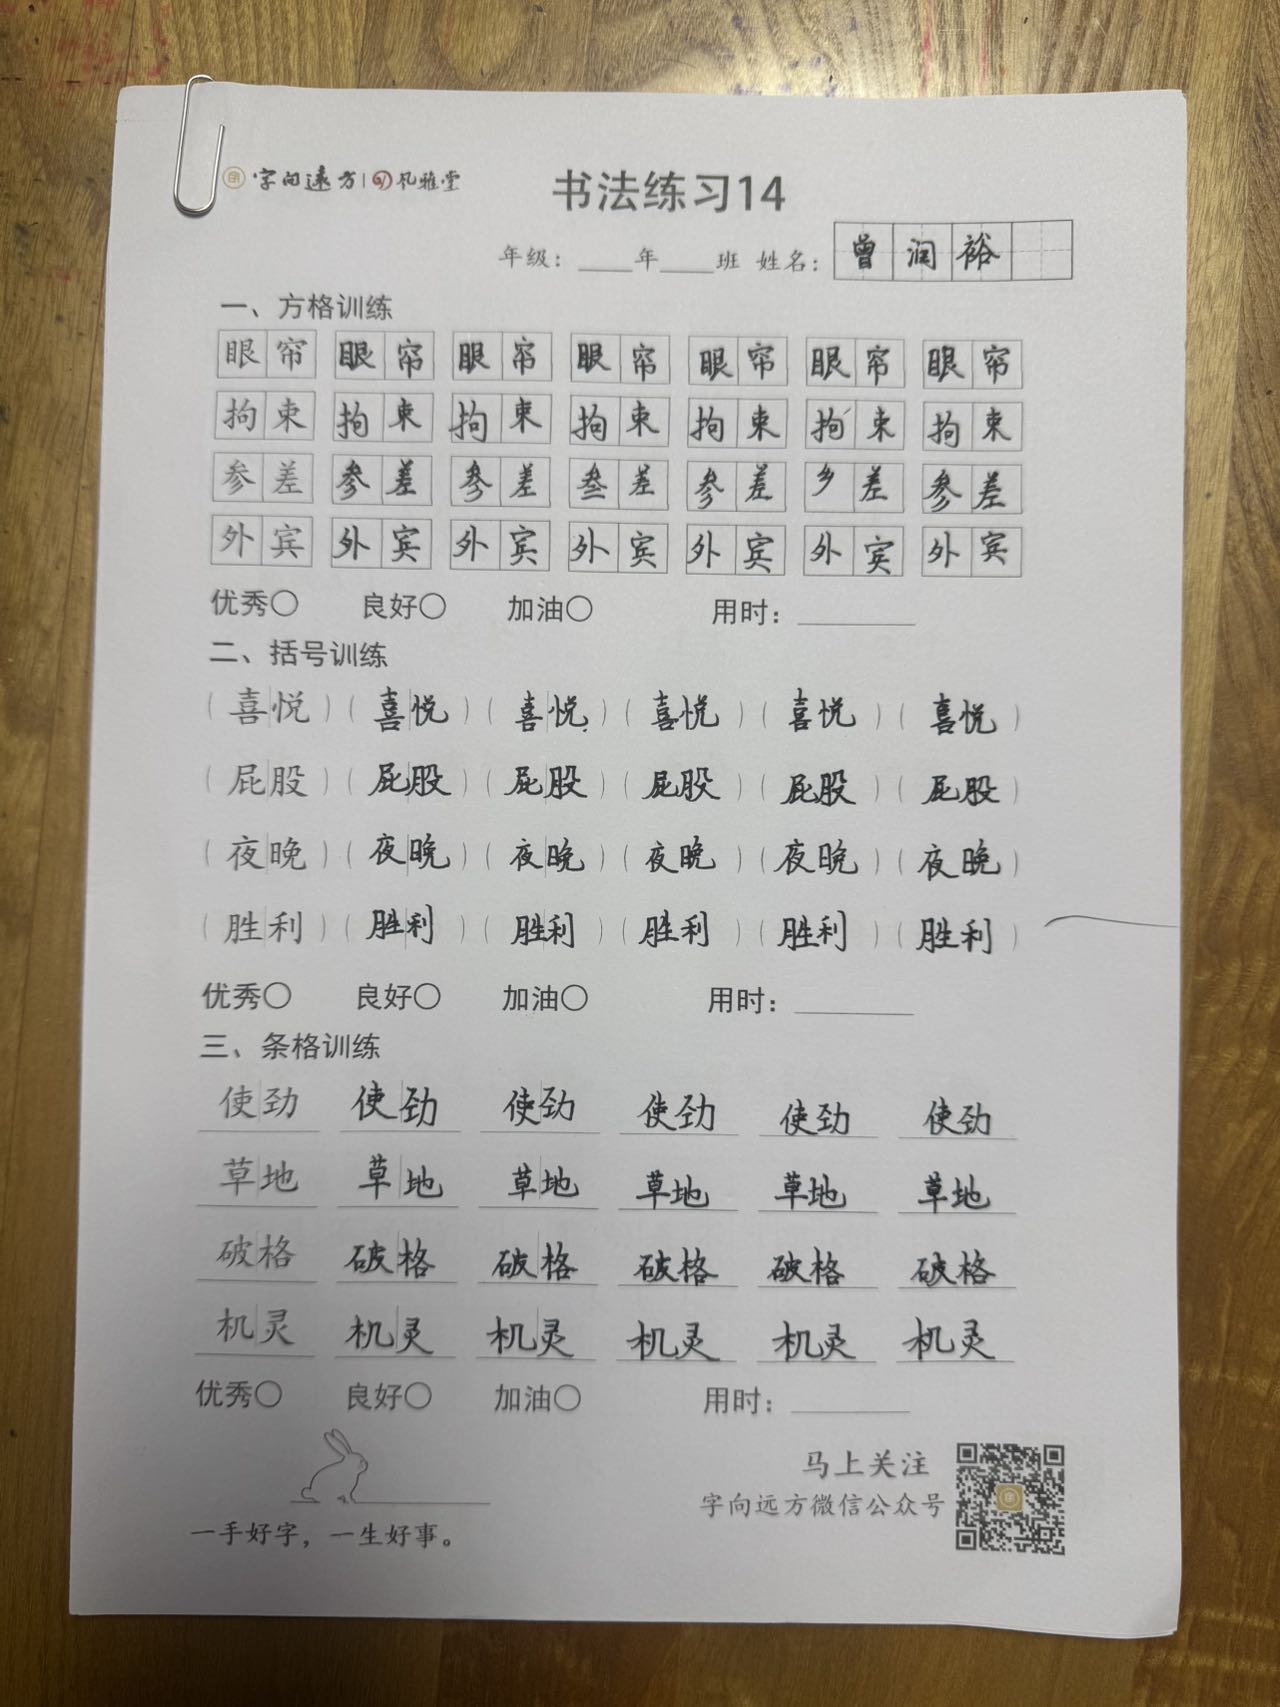 字向遠方 | 风雅堂
书法练习14
年级：____年____班 姓名：曾润裕
一、方格训练
眼帘 眼帘 眼帘 眼帘 眼帘 眼帘 眼帘
拘束 拘束 拘束 拘束 拘束 拘束 拘束
参差 参差 参差 叁差 参差 乡差 参差
外宾 外宾 外宾 外宾 外宾 外宾 外宾
优秀○ 良好○ 加油○ 用时：________
二、括号训练
（喜悦）（喜悦）（喜悦）（喜悦）（喜悦）（喜悦）
（屁股）（屁股）（屁股）（屁股）（屁股）（屁股）
（夜晚）（夜晚）（夜晚）（夜晚）（夜晚）（夜晚）
（胜利）（胜利）（胜利）（胜利）（胜利）（胜利）
优秀○ 良好○ 加油○ 用时：________
三、条格训练
使劲 使劲 使劲 使劲 使劲 使劲
草地 草地 草地 草地 草地 草地
破格 破格 破格 破格 破格 破格
机灵 机灵 机灵 机灵 机灵 机灵
优秀○ 良好○ 加油○ 用时：________
马上关注
字向远方微信公众号
一手好字，一生好事。